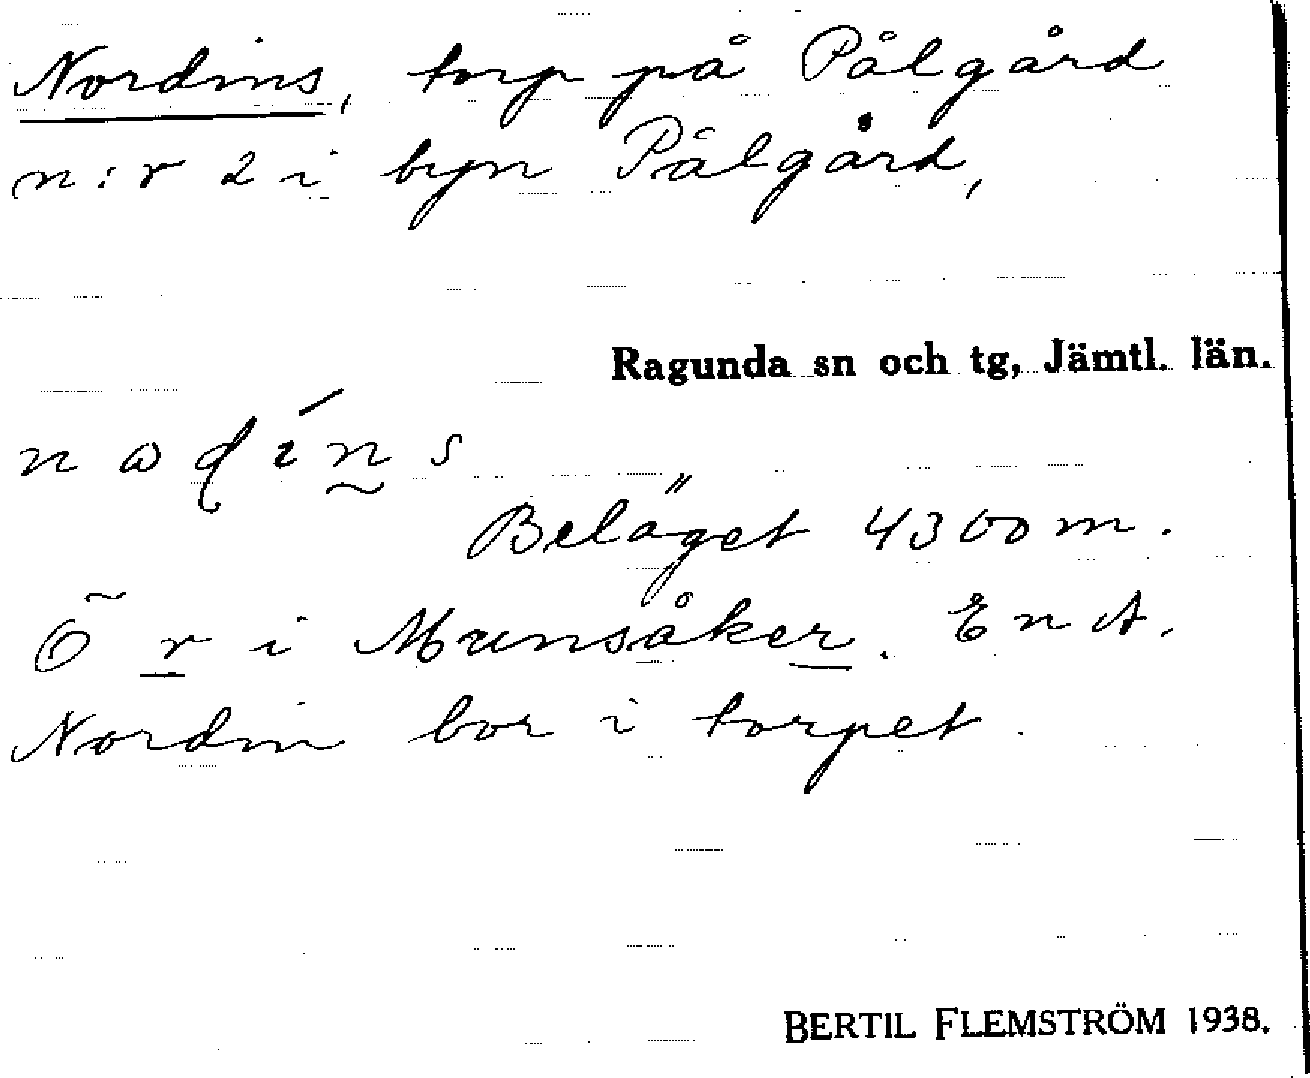 Nordins, torp på Pålgård
n:r 2 i byn Pålgård,
Ragunda sn och tg, Jämtl. län.
Beläget 4300 m.
Ö r i Munsåker. En A.
Nordin bor i torpet.
BERTIL FLEMSTRÖM 1938.